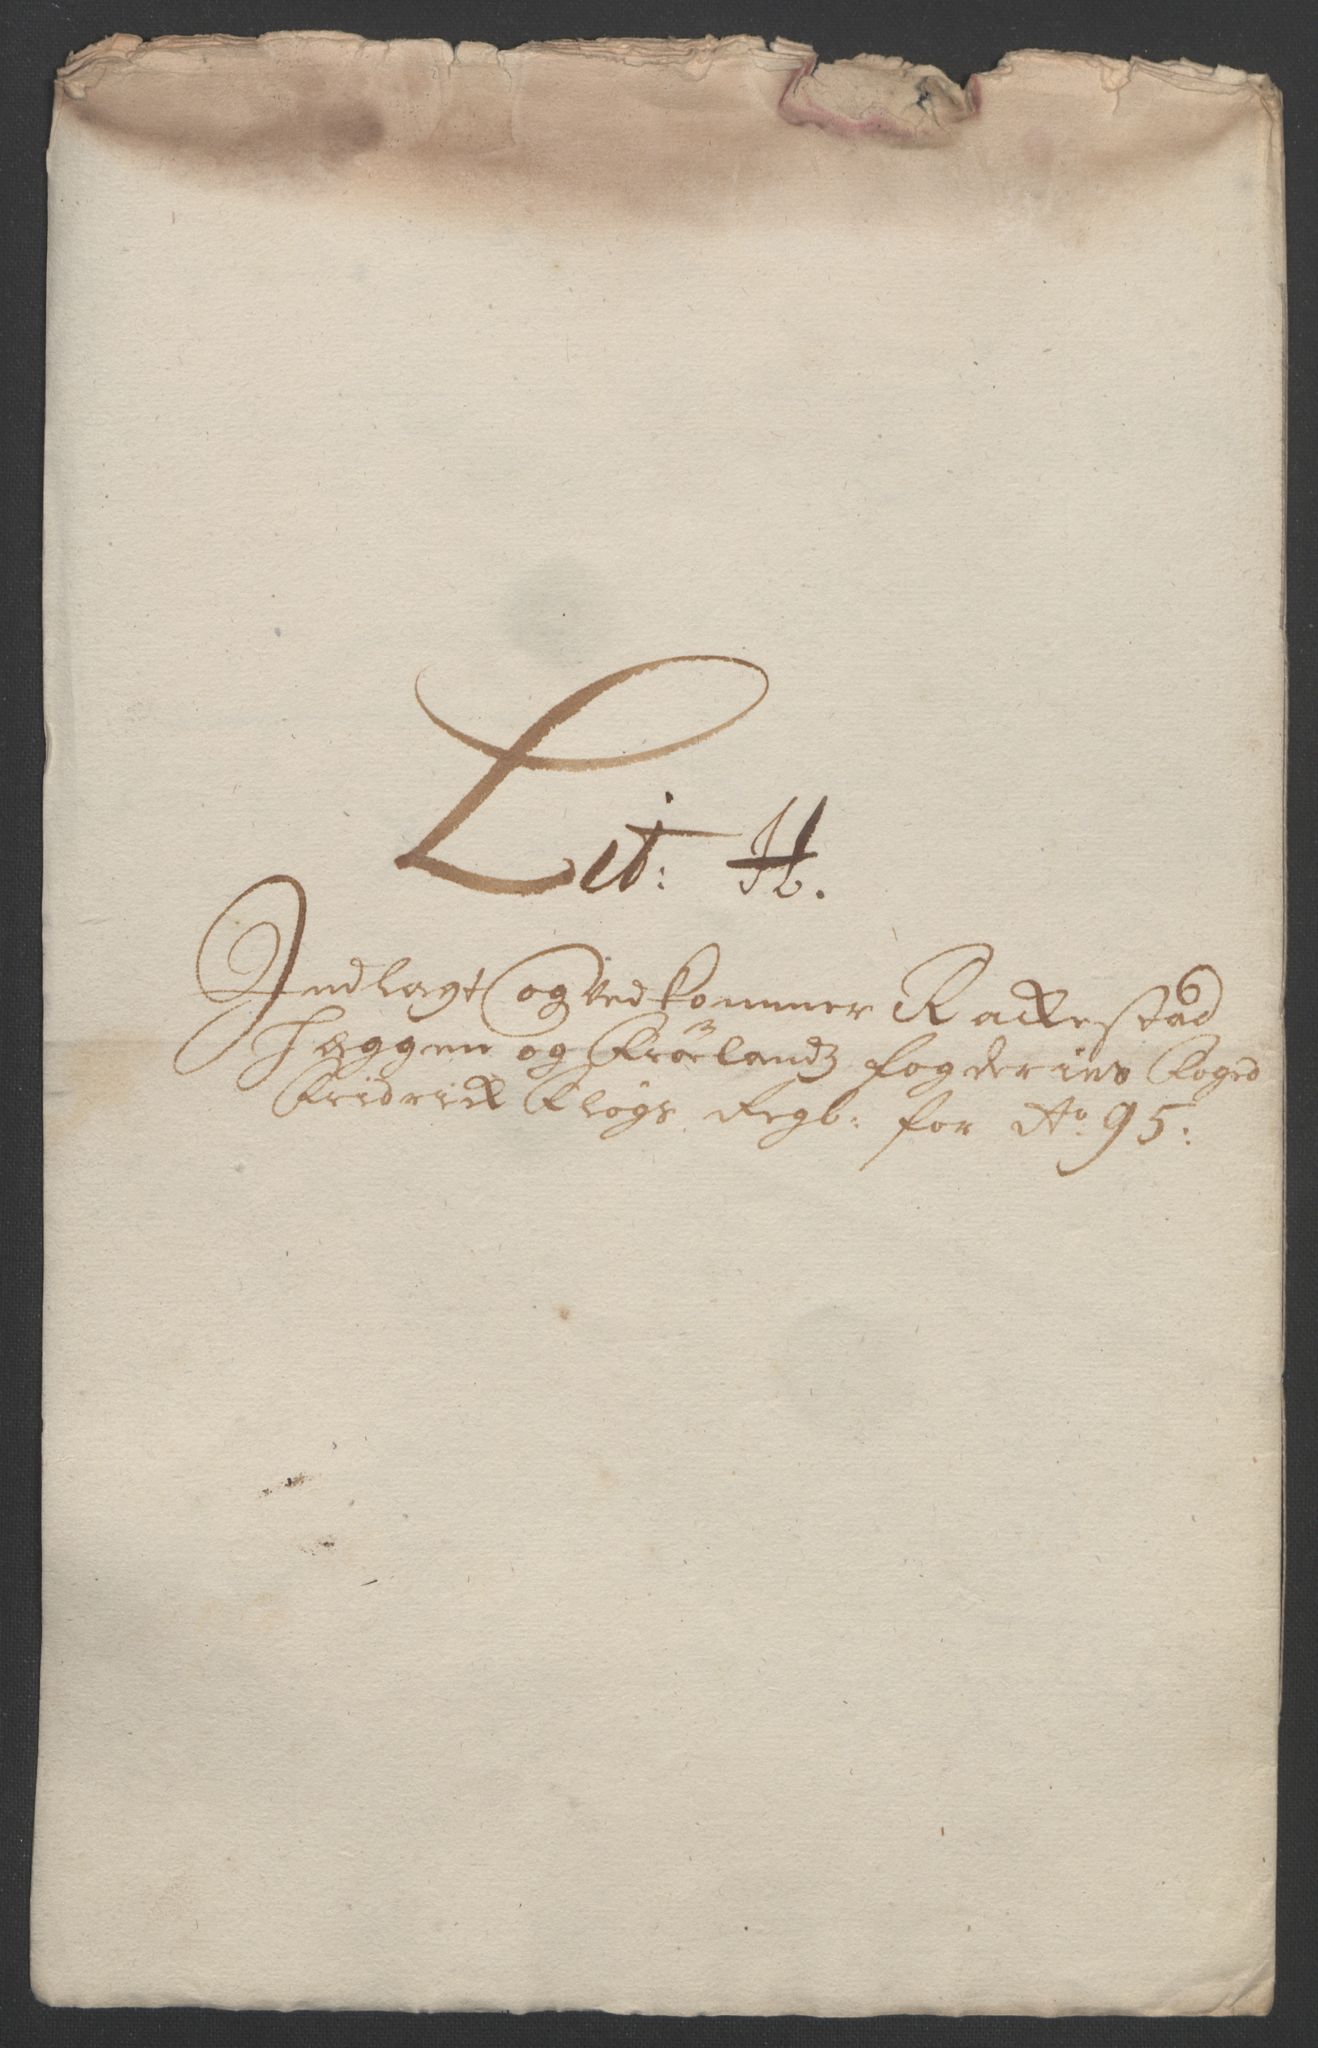 Lit: H.
Indlagt og Vedkommer Rackestad
Heggen og Frøelandz fogderies Foged
Fridrick Fløgs Regb: for Aº 95: